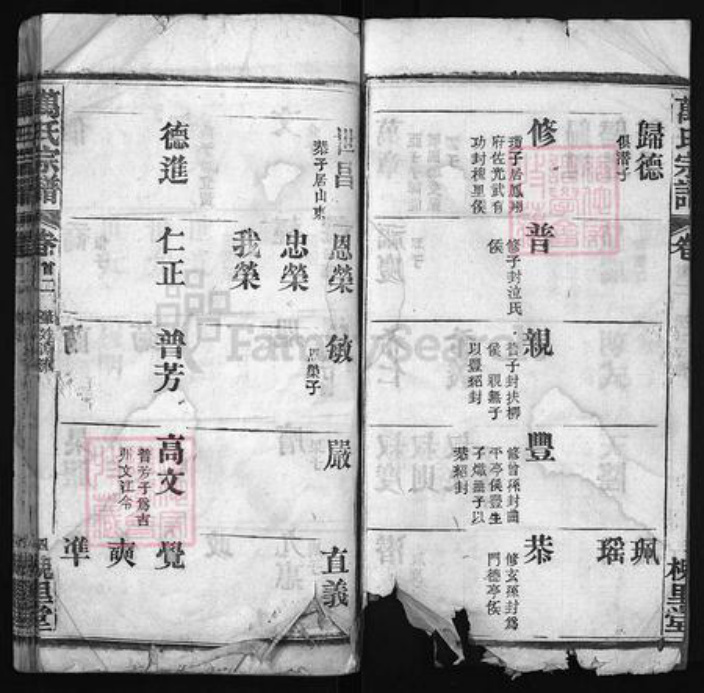 萬氏宗譜
卷
槐里堂
歸德
俱潛子
珮
瑶
修
瓊子居鳳翔
府佐光武有
功封槐里侯
普
修子封泫氏
侯
親
普子封扶柳
侯 親無子
以豐紹封
豐
修曾孫封曲
平亭侯豐生
子熾無子以
恭紹封
恭
修玄孫封爲
門德亭侯
昌
子居山東
恩榮
敏
恩榮子
嚴
直義
忠榮
我榮
德進
仁正
普芳
高文
普芳子爲吉
州文江令
覺
奭
準
萬氏宗譜
卷首二
槐里堂
FamilySearch